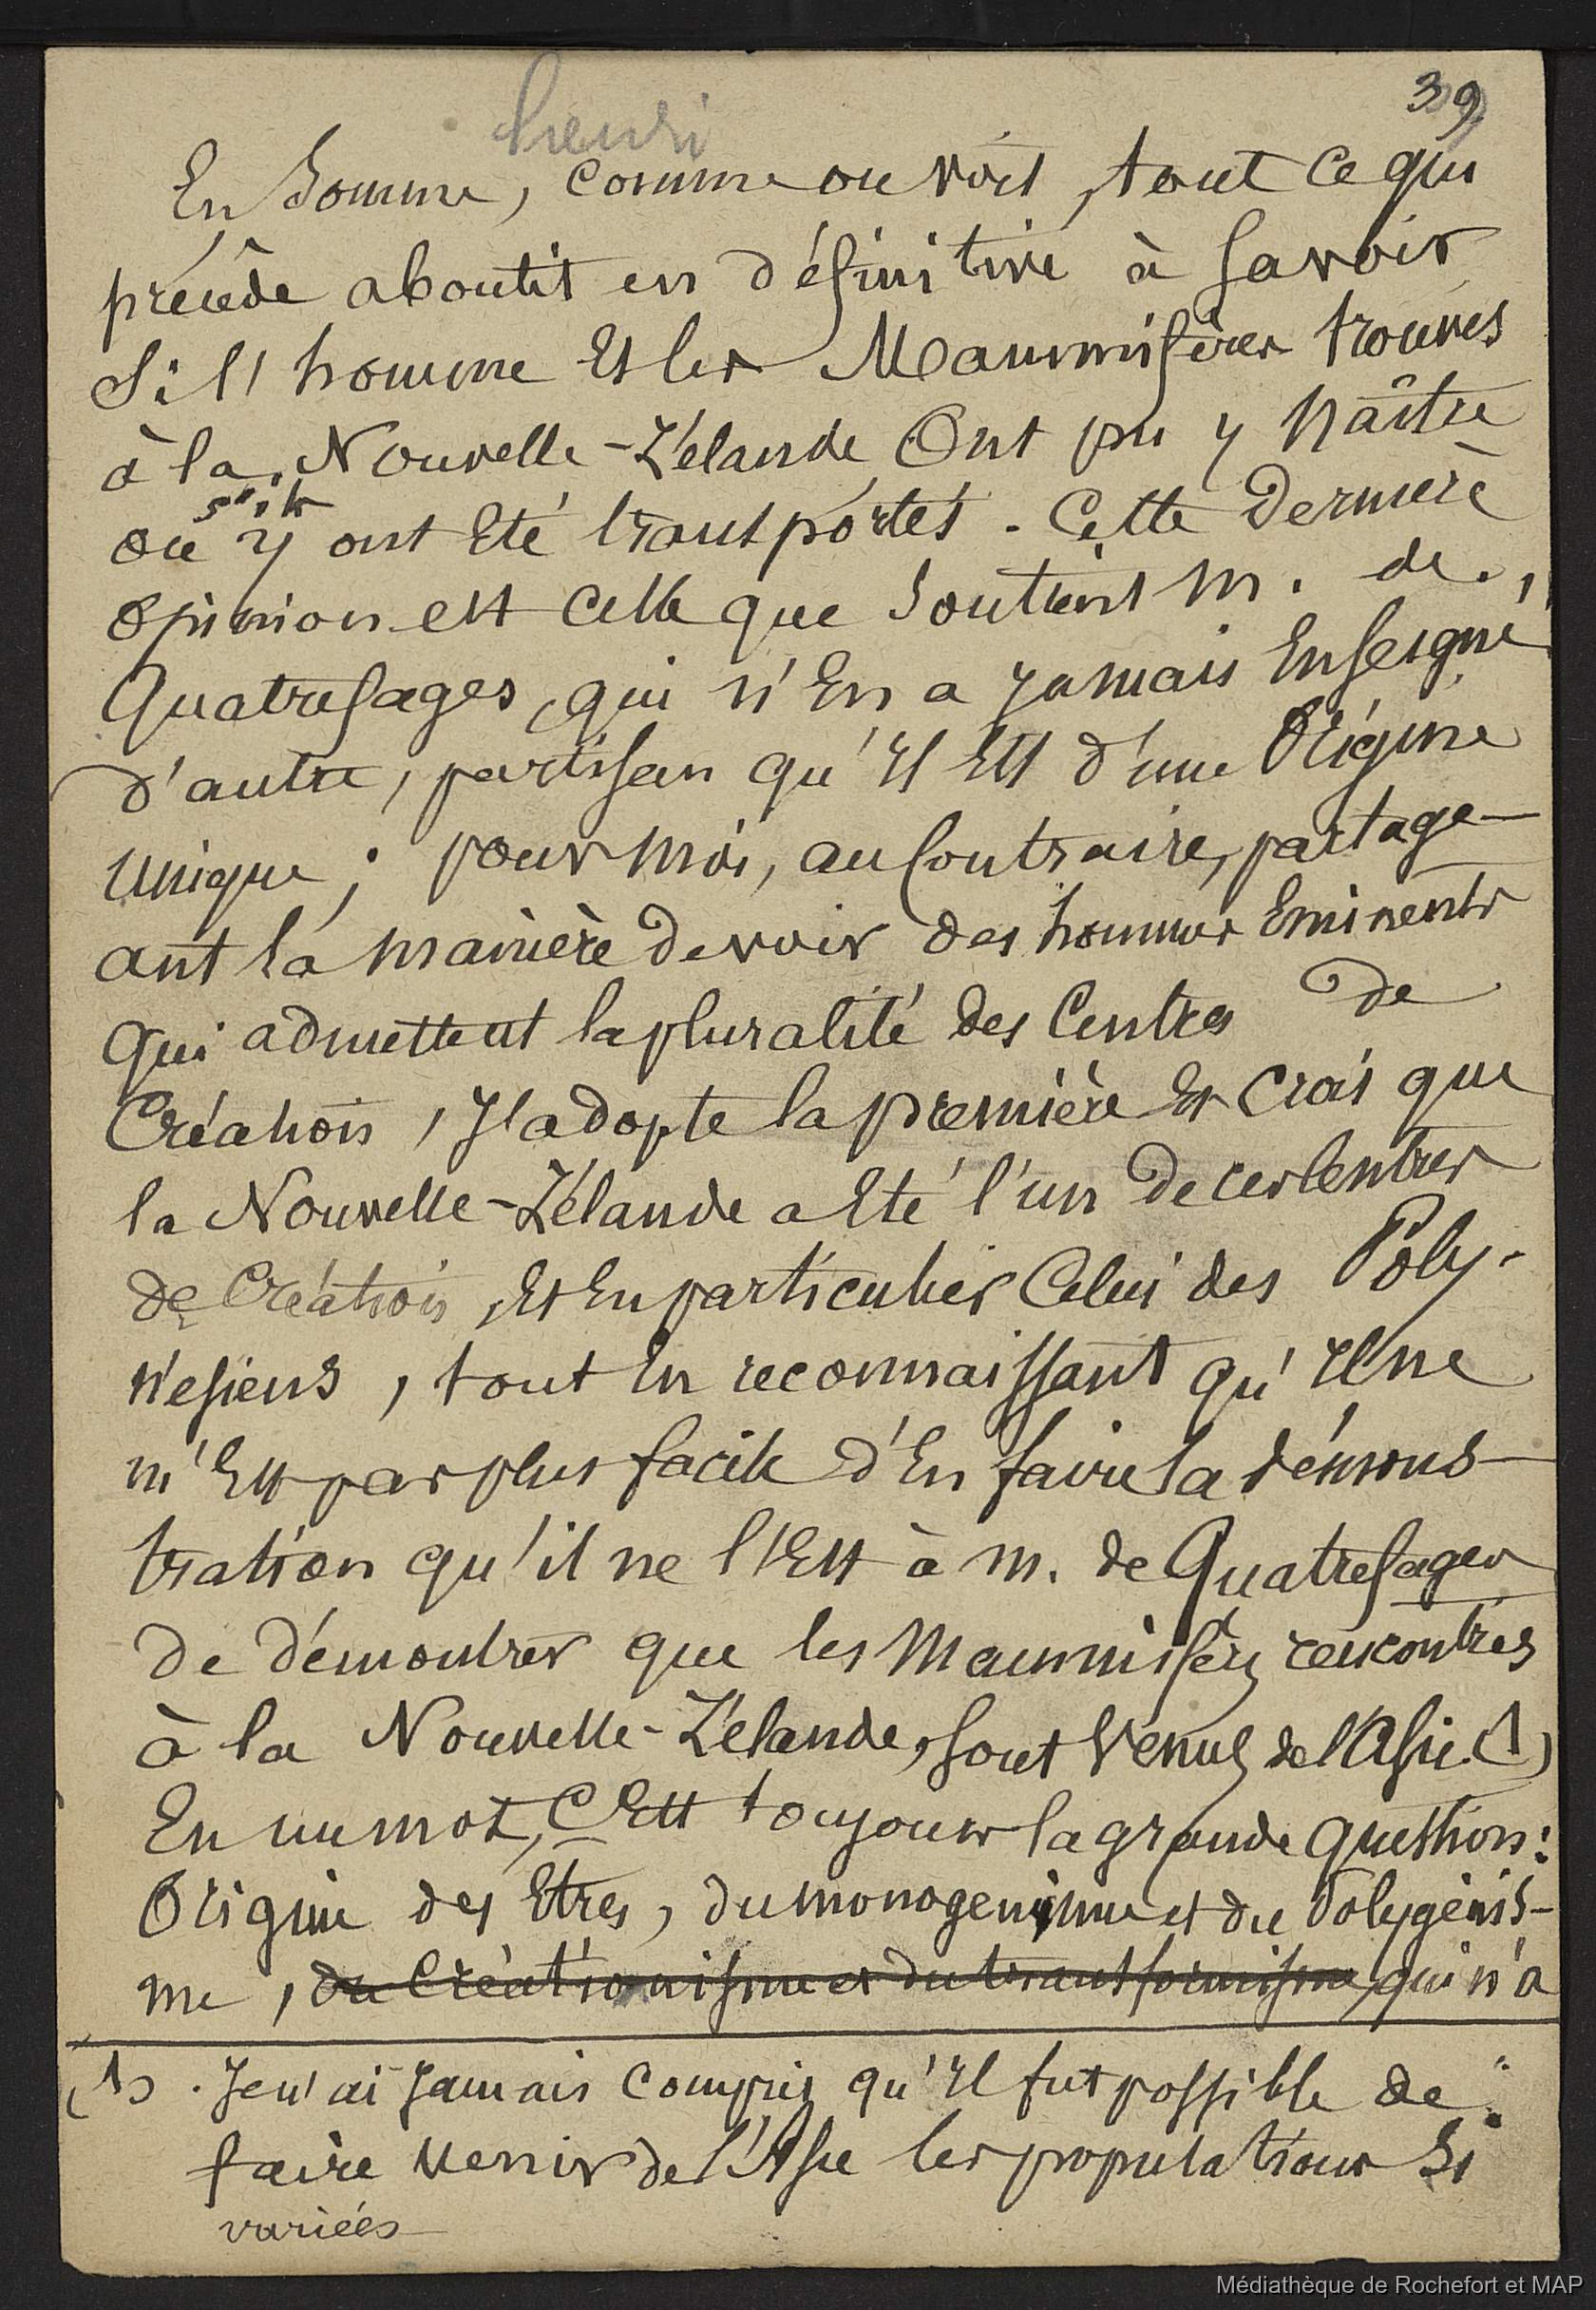 39
henri
En Somme, comme on voit, tout ce qui
précède aboutit en définitive à savoir
Si l'homme Et les Mammifères trouvés
à la Nouvelle-Zélande Ont pu y Naître
s'ils
ou y ont Eté transportés. Cette Dernière
Opinion est celle que Soutient M. de
Quatrefages, qui n'En a jamais Enseigné
d'autre, partisan qu'Il Est d'une Origine
Unique ; pour moi, au Contraire, partage-
ant la manière de voir des hommes Eminents
Qui admettent la pluralité des Centres de
Création, J'adopte la première Et Crois que
la Nouvelle-Zélande a Eté l'un de ces Centres
de Création, Et En particulier Celui des Poly-
nésiens, tout En reconnaissant qu'Il ne
m'Est pas plus facile d'En faire la démons-
tration qu'il ne l'Est à M. de Quatrefages
de démontrer que les Mammifères rencontrés
à la Nouvelle-Zélande, sont Venus de l'Asie. (1)
En un mot, C'Est toujours la grande question :
Origine des Etres, du monogenisme et du Polygénis-
me, du Créationisme et du transformisme, qui n'a
(1). Je n'ai Jamais Compris qu'Il fut possible de
faire Venir de l'Asie les populations Si
variées
Médiathèque de Rochefort et MAP